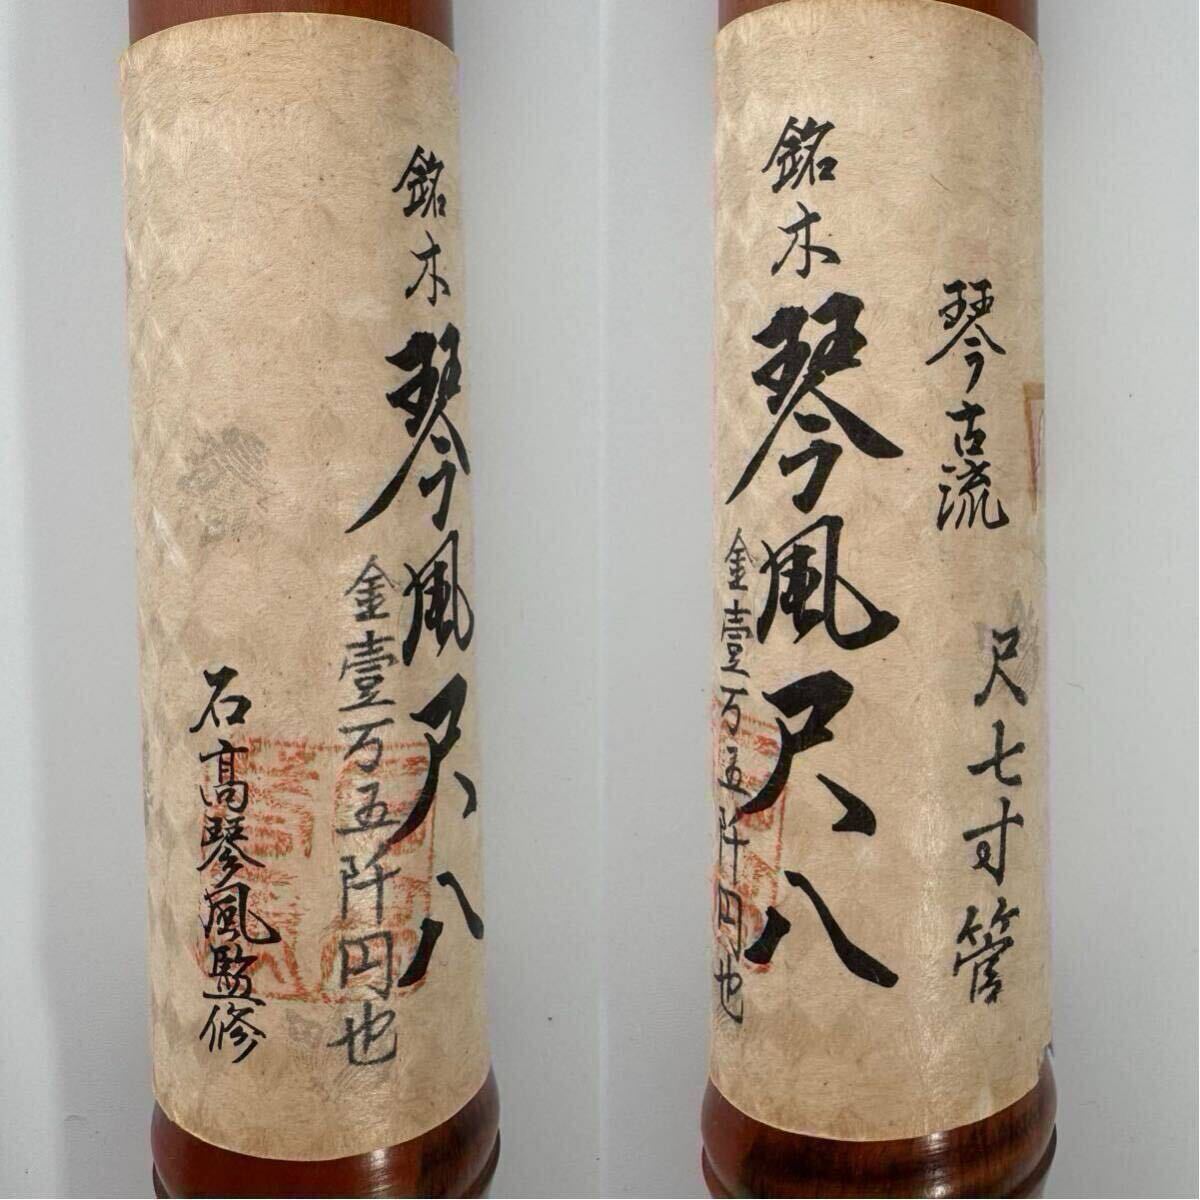 銘木
琴風尺八
金壹万五阡円也
石高琴風監修
琴古流
尺七寸管
銘木
琴風尺八
金壹万五阡円也